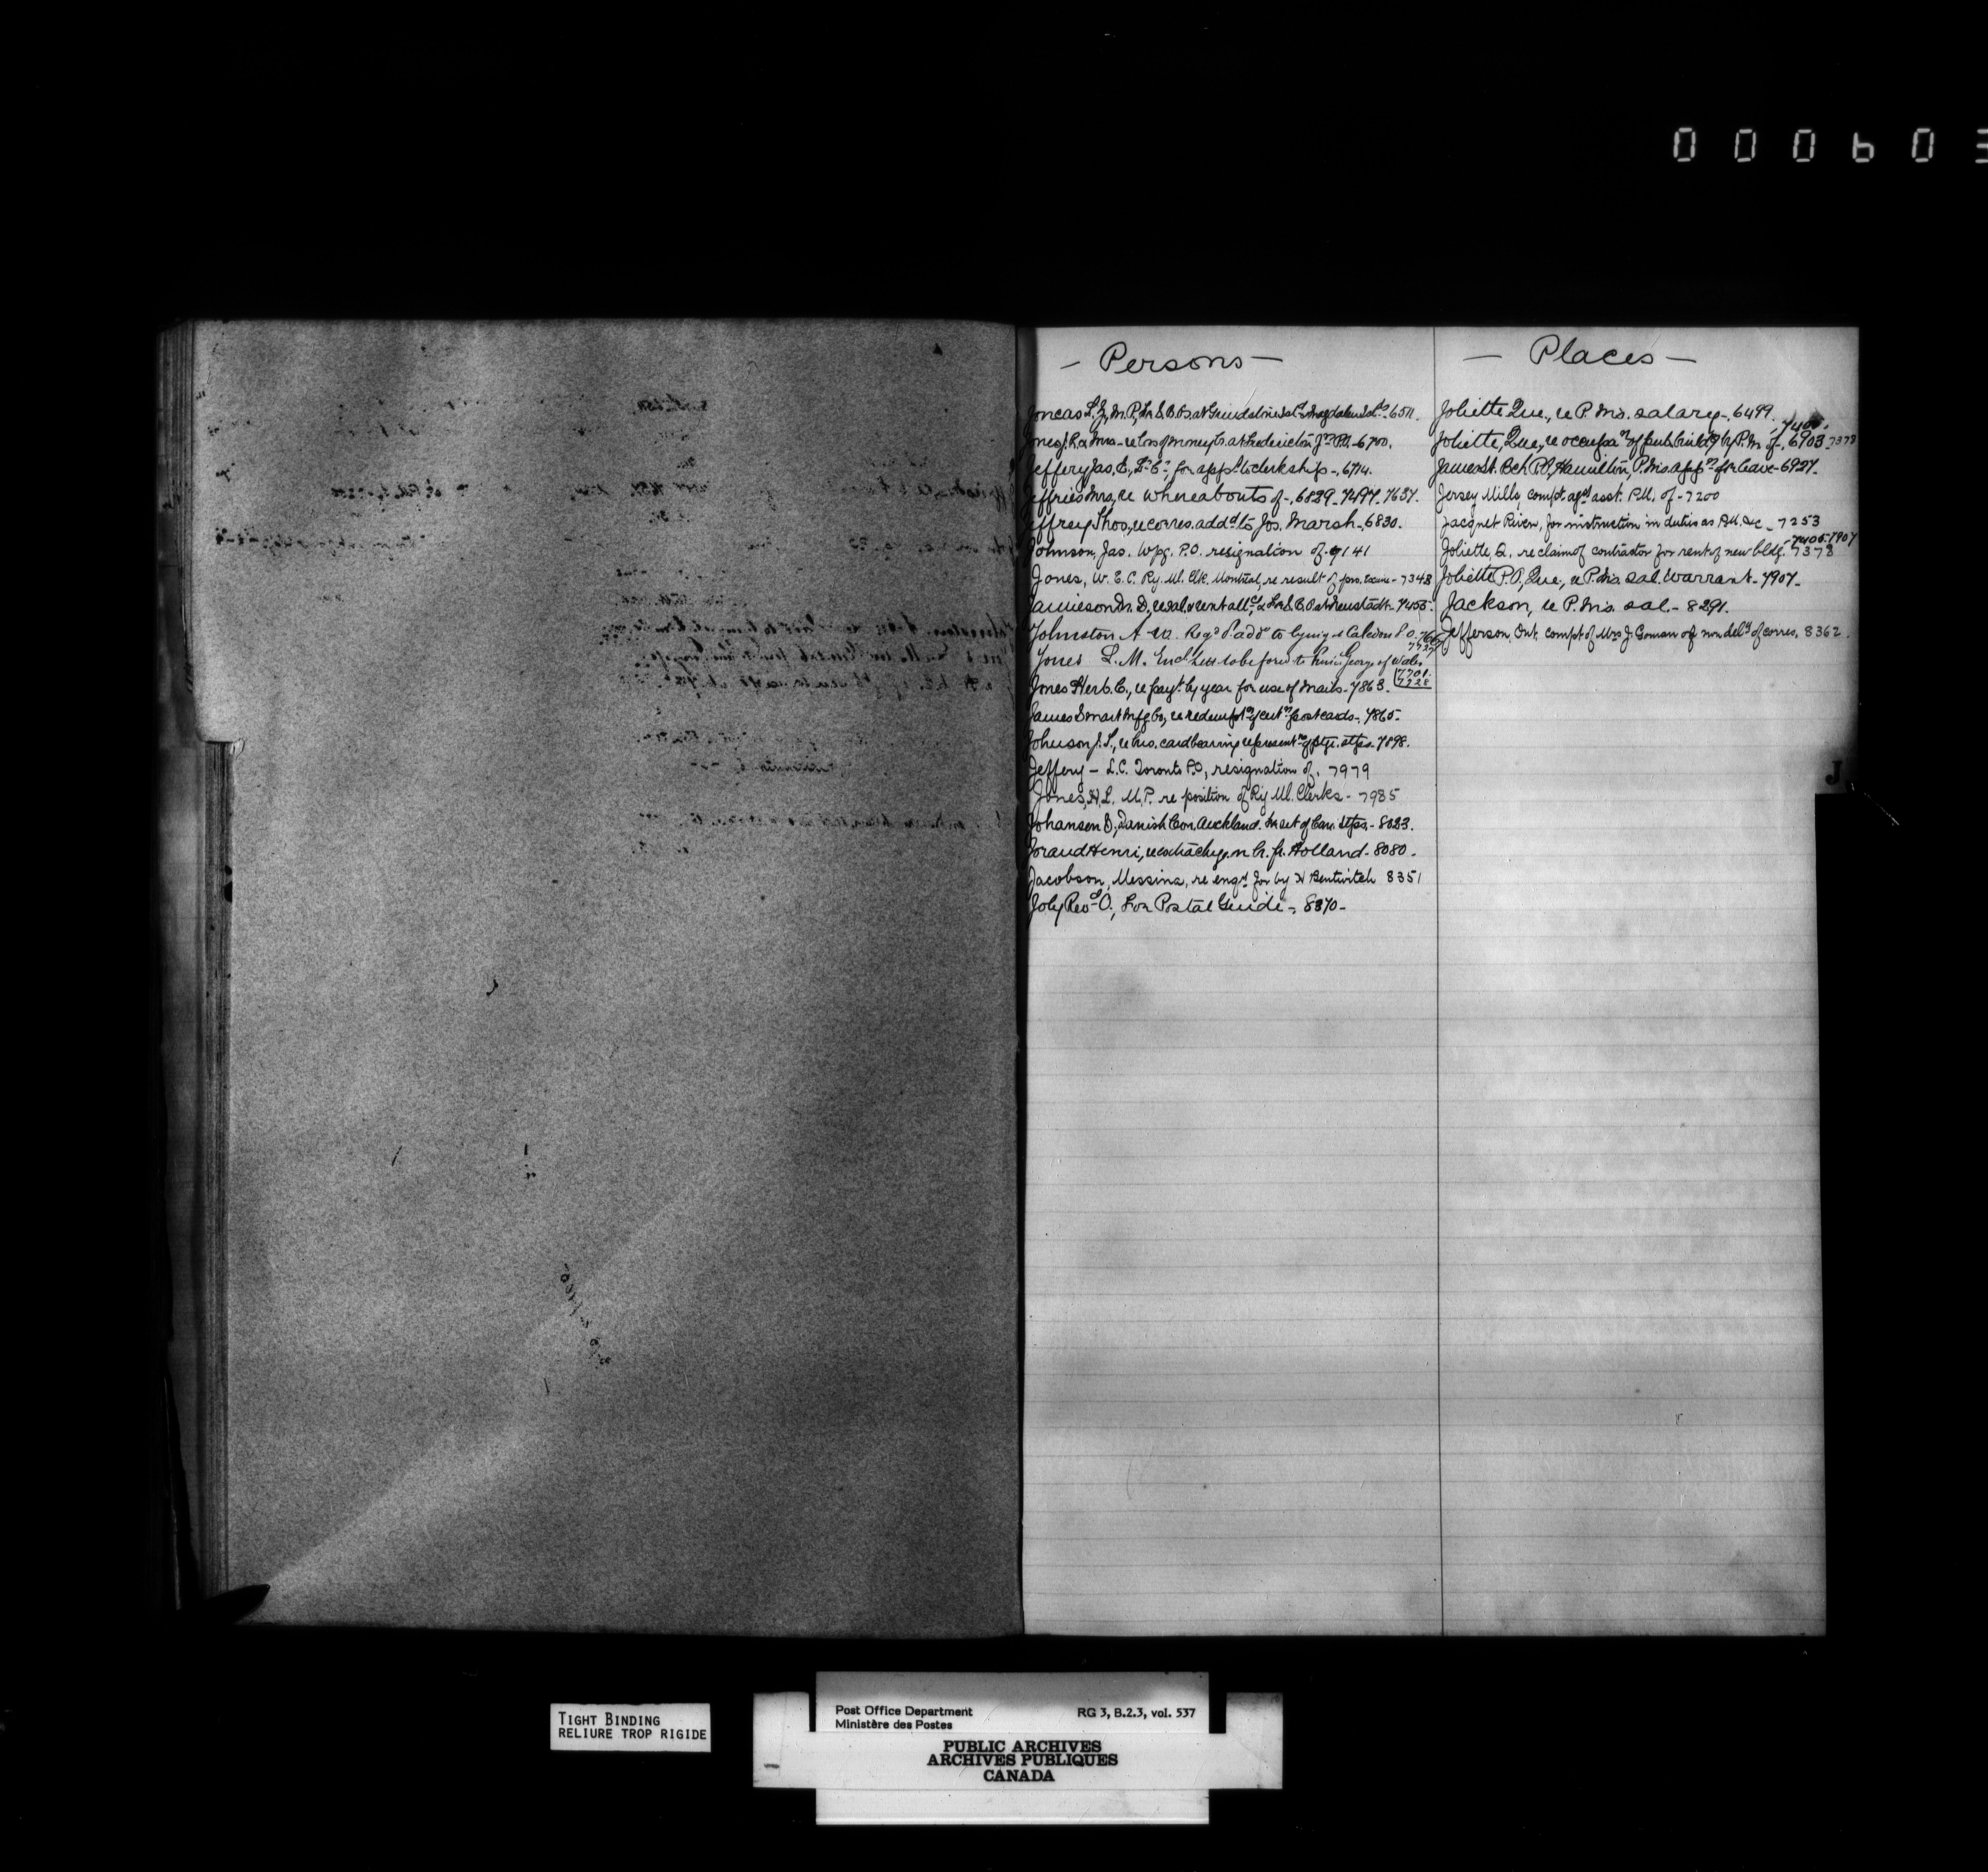 000603
- Persons -
Joncas L.Z., M.P., for S.B. Bs at Grindstone Isld & Magdalen Ids - 6511.
Jones J.R. & Mrs - re loss of money ltr. at Fredericton Jn P.O. - 6700.
Jeffery Jas. E., for appt to clerkship - 6714.
Jeffries Mrs, re whereabouts of - 6829 - 7497 - 7637.
Jeffrey Thos., re corres. addd to Jos. Marsh - 6830.
Johnson, Jas. Wpg. P.O. resignation of - 7141
Jones, W. E. C. Ry. Ml. Clk. Montreal re result of pro. Exam - 7348
Jamieson Dr. D., re sal. & rent allce, & for S.B. Bs at Neustadt - 7455.
Johnston A W. Regd addd to Caledon P.O.
7727
Jones L. M. Encl. letter to be forwd to Prince George of Wales
7701.
7728
Jones Herb. C., re payt by year for use of mails - 7863.
James Smart Mfg Co., re redemptn of cutn postcards - 7865.
Johnson J. S., re his card bearing representns of ptge. stps. 7898.
Jeffery - L.C. Toronto P.O, resignation of, 7979
Jones, H. L. M.P. re position of Ry Ml. Clerks - 7985
Johansen D, Danish Con. Auckland. for set of Can. stps. - 8023.
Joraud Henri, re extra chge. on lr. fr. Holland - 8080.
Jacobson, Messina, re enqy for by H Bentwitch 8351
Joly Revd O., for Postal Guide - 8370 -
- Places -
Joliette Que., re P.Mrs. salary - 6499.
7400.
Joliette, Que., re occupan of pub. buildg by P.M of - 6903 - 7378
James St. Bch P.O, Hamilton, P.Mrs appn for leave - 6927.
Jersey Mills, compt. agst asst. P.M. of - 7200
Jacquet River, for instruction in duties as P.M. &c - 7253
- 7400. 7907
Joliette, Q. re claim of contractor for rent of new bldg. - 7378
Joliette P.O, Que., re P.Mrs sal. warrant - 7907 -
Jackson, re P.Mrs. sal. - 8291.
Jefferson, Ont. compt of Mrs J. Goman of non delvy of corres. 8362.
J
TIGHT BINDING
RELIURE TROP RIGIDE
Post Office Department RG 3, B.2.3, vol. 537
Ministère des Postes
PUBLIC ARCHIVES
ARCHIVES PUBLIQUES
CANADA